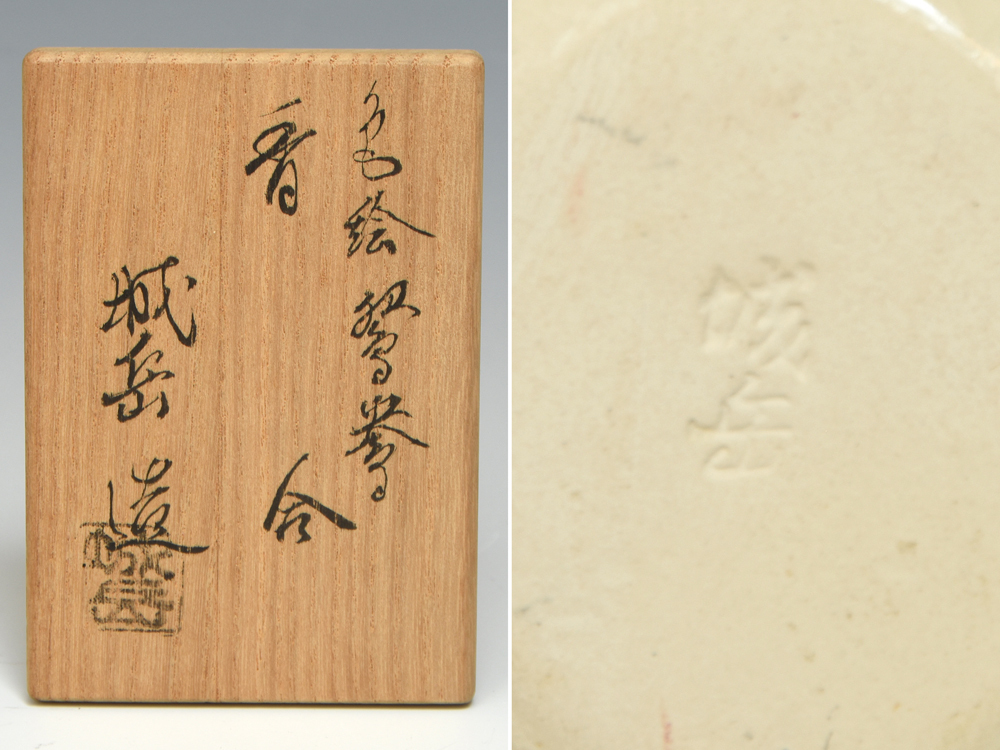 色絵鴛鴦
香合
城岳造
城岳
城岳